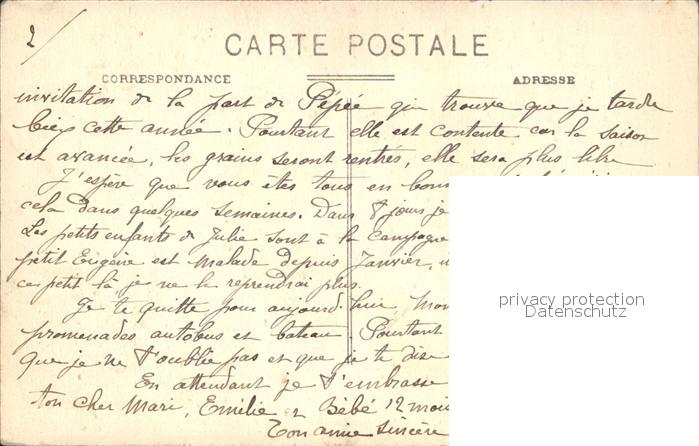 2/
CARTE POSTALE
CORRESPONDANCE
ADRESSE
invitation de la part de Pépée qui trouve que je tarde
bien cette année. Pourtant elle est contente car la saison
est avancée, les grains seront rentrés, elle sera plus libre
J'espère que vous êtes tous en bon
cela dans quelques semaines. Dans 8 jours je
Les petits enfants de Julie sont à la campagne
petit Eugène est malade depuis Janvier,
ce petit là je ne le reprendrai plus.
Je te quitte pour aujourd'hui Mon
promenades autobus et bateau. Pourtant
que je ne t'oublie pas et que je te dise
En attendant je t'embrasse
ton cher Mari, Emilie et Bébé 12 mois
Ton amie sincère
privacy protection
Datenschutz